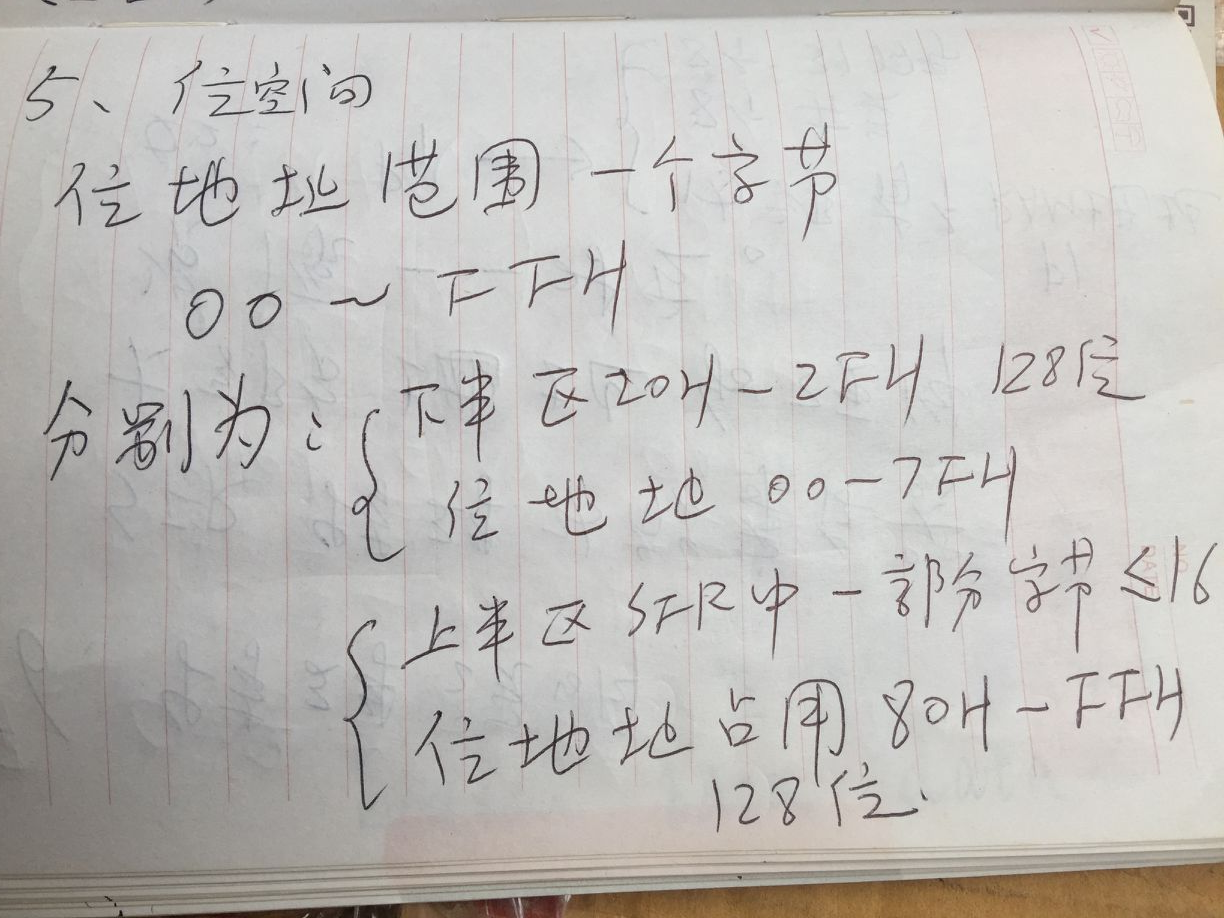 5、位空间
位地址范围一个字节
00~FFH
分别为:下半区20H-2FH 128位
位地地00-7FH
上半区SFR中一部分字节≤16
位地地占用80H-FFH
128位.